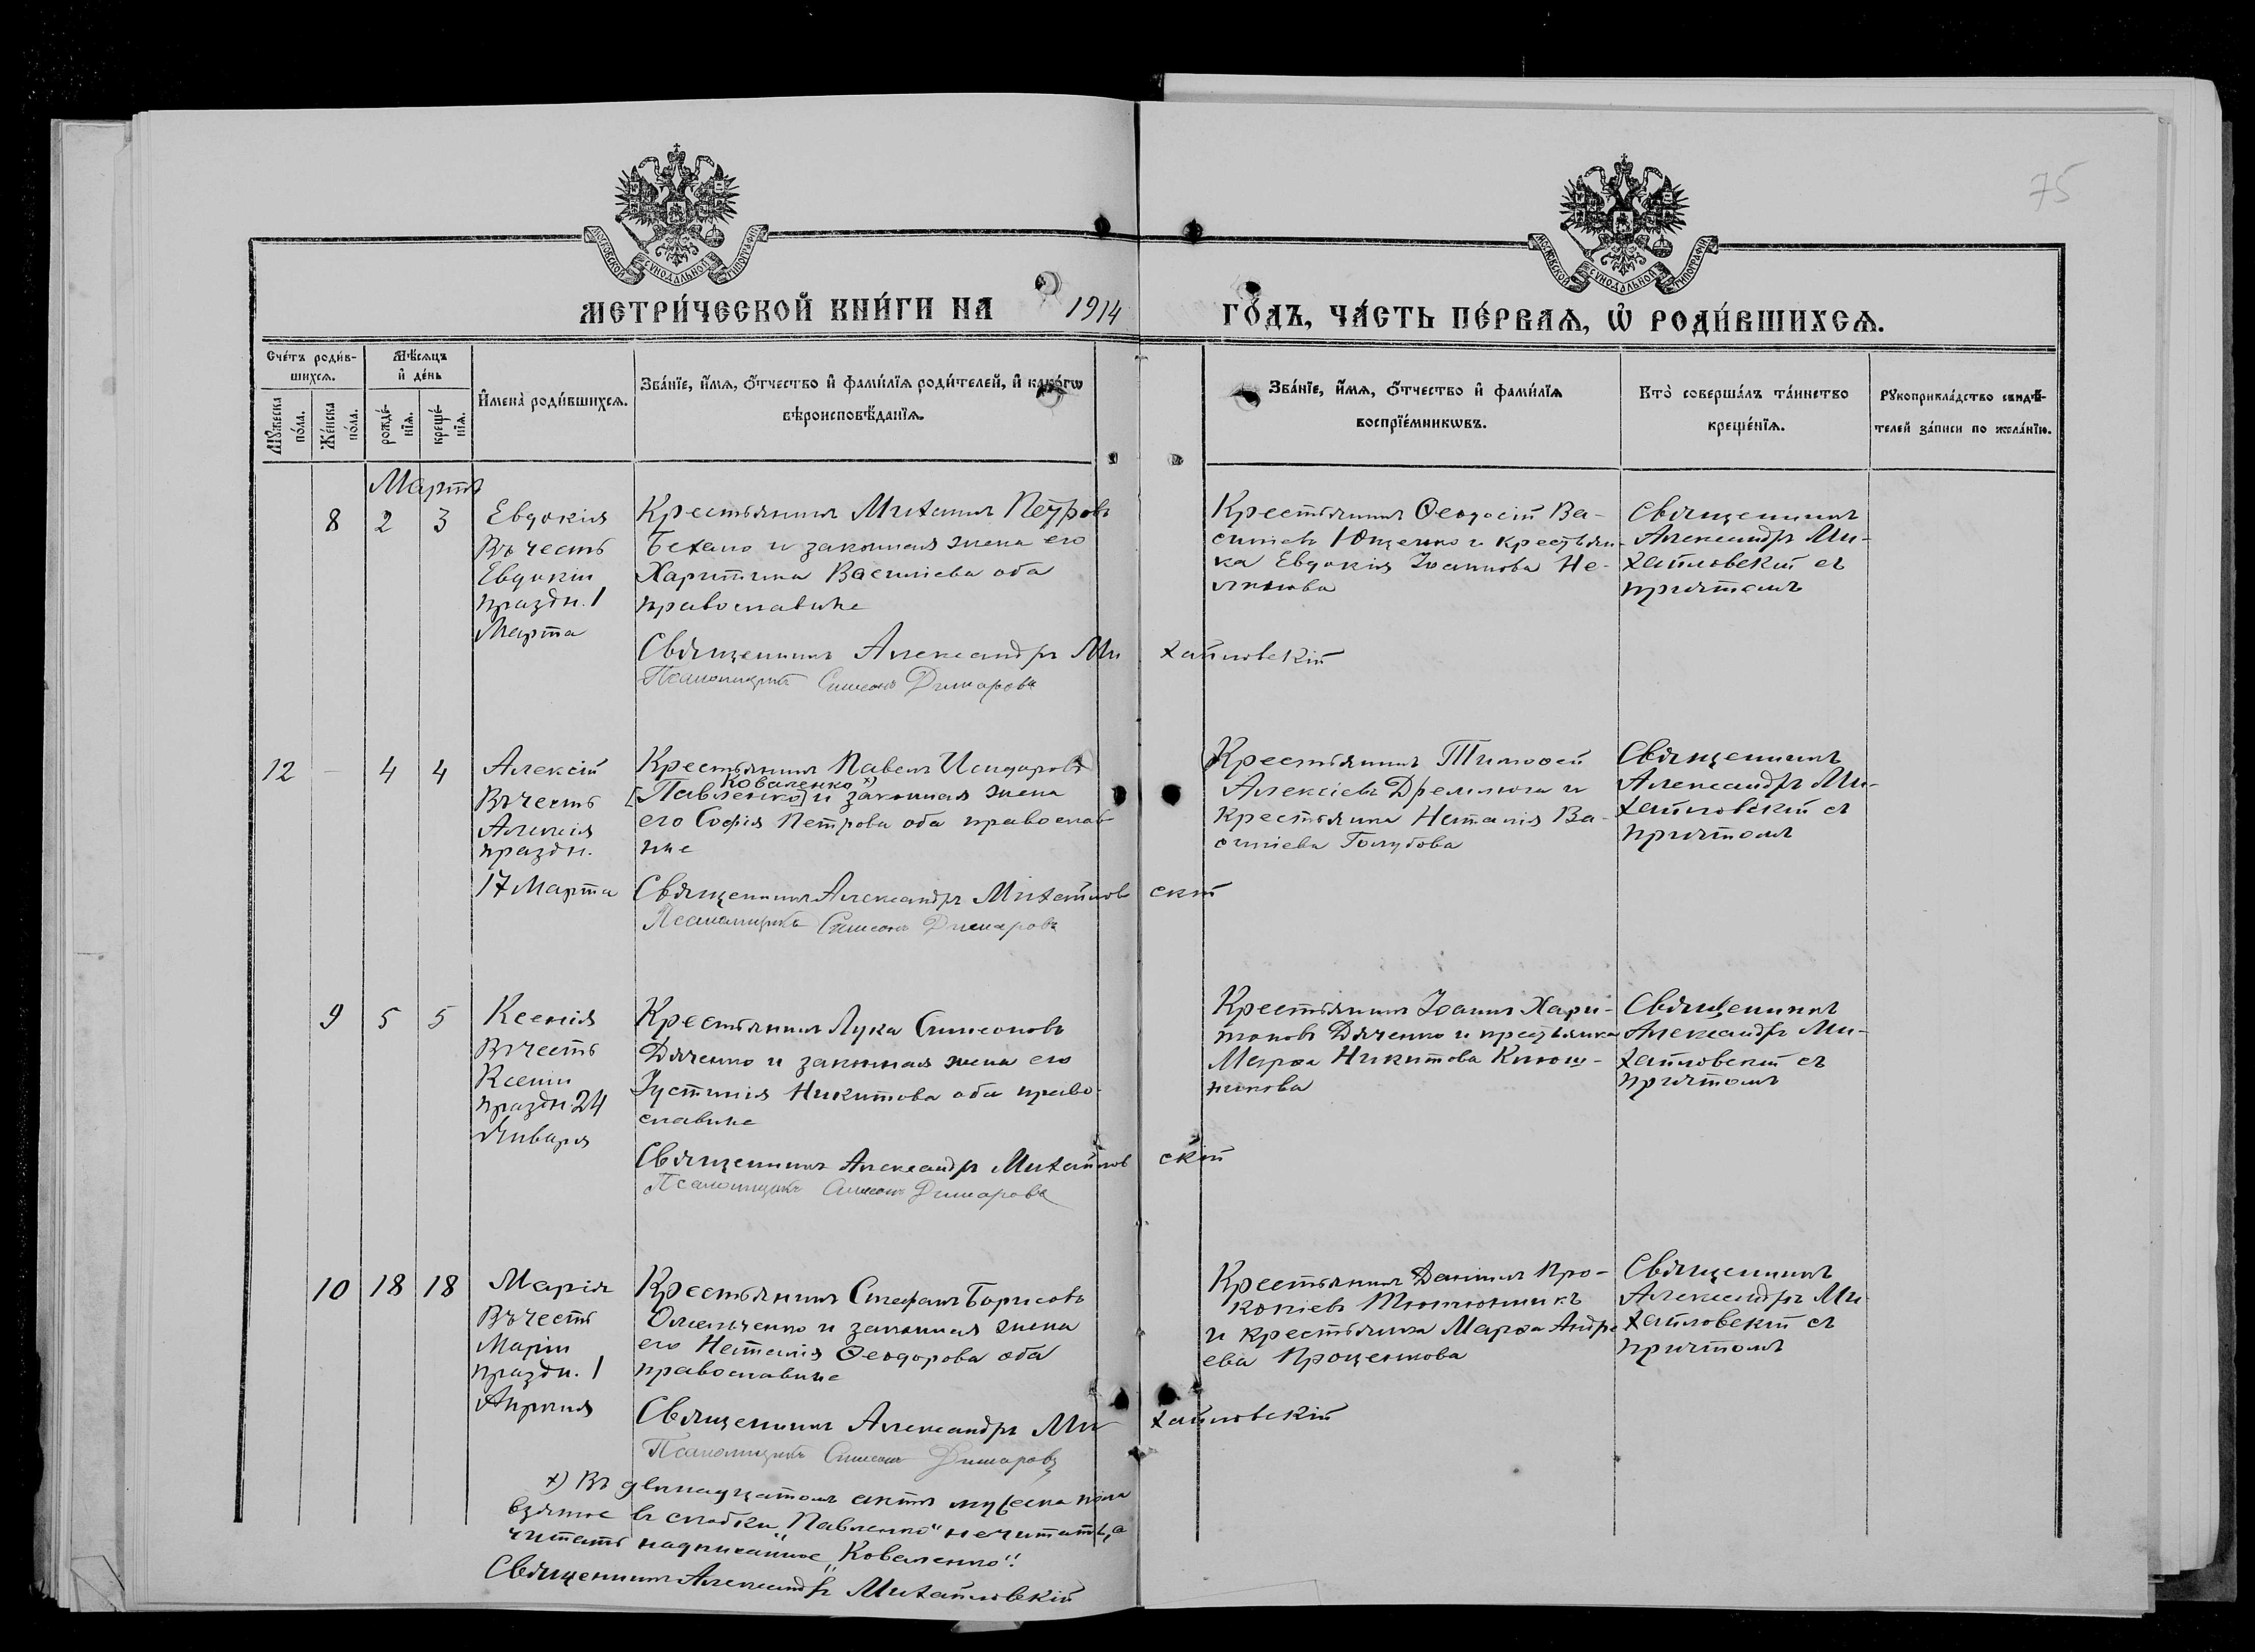 75
МОСКОВСКОЙ СѴНОДАЛЬНОЙ ТИПОГРАФІИ
МОСКОВСКОЙ СѴНОДАЛЬНОЙ ТИПОГРАФІИ
МЕТРИ́ЧЕСКОЙ КНИ́ГИ НА 1914 ГО́ДЪ, ЧА́СТЬ ПЕ́РВАѦ, Ѽ РОДИ́ВШИХСѦ.
Сче́тъ роди́в-
шихсѧ.
Мꙋ́жеска
по́ла.
Же́нска
по́ла.
Мѣ́сѧцъ
и҆ де́нь
рожде́-
нїѧ.
креще́-
нїѧ.
И҆мена̀ роди́вшихсѧ.
Зва́нїе, и҆́мѧ, ѻ҆́тчество и҆ фами́лїѧ роди́телей, и҆ како́гѡ
вѣроисповѣ́данїѧ.
Зва́нїе, и҆́мѧ, ѻ҆́тчество и҆ фами́лїѧ
воспрїе́мникѡвъ.
Кто̀ соверша́лъ та́инство
креще́нїѧ.
Рꙋкоприкла́дство свидѣ́-
телей за́писи по жела́нїю.
Мартъ
8 2 3
Евдокія
Въ честь
Евдокіи
праздн. 1
Марта
Крестьянинъ Михаилъ Петровъ
Бехало и законная жена его
Харитина Васильева оба
православные
Священникъ Александръ Михайловскій
Псаломщикъ Симеонъ Димаровъ
Крестьянинъ Ѳеодосій Ва-
сильевъ Ющенко и крестьян-
ка Евдокія Іоаннова Не-
Священникъ
Александръ Ми-
хайловскій съ
причтомъ
12 - 4 4
Алексій
Въ честь
Алексія
праздн.
17 Марта
Крестьянинъ Павелъ Исидоровъ
Коваленко х)
[Павленко] и законная жена
его Софія Петрова оба православ
ные
Священникъ Александръ Михайловскій
Псаломщикъ Симеонъ Димаровъ
Крестьянинъ Тимоѳей
Алексіевъ Дремлюга и
крестьянка Наталія Ва-
сильева Голубова
Священникъ
Александръ Ми-
хайловскій съ
причтомъ
9 5 5
Ксенія
Въ честь
Ксеніи
праздн 24
Января
Крестьянинъ Лука Симеоновъ
Дяченко и законная жена его
Іустинія Никитова оба право-
славные
Священникъ Александръ Михайловскій
Псаломщикъ Симеонъ Димаровъ
Крестьянинъ Іоаннъ Хари-
тоновъ Дяченко и крестьянка
Марѳа Никитова Клюш-
никова
Священникъ
Александръ Ми-
хайловскій съ
причтомъ
10 18 18
Марія
Въ честь
Маріи
праздн. 1
Апрѣля
Крестьянинъ Стефанъ Борисовъ
Омельченко и законная жена
его Наталія Ѳеодорова оба
православные
Священникъ Александръ Михайловскій
Псаломщикъ Симеонъ Димаровъ
Крестьянинъ Даніилъ Про-
копіевъ Тютюнникъ
и крестьянка Марѳа Андре
ева Проценкова
Священникъ
Александръ Ми
хайловскій съ
причтомъ
х) Въ двѣнадцатомъ актѣ мужеска пола
взятое въ скобки „Павленко" не читать, а
читать надписанное „Коваленко".
Священникъ Александръ Михайловскій